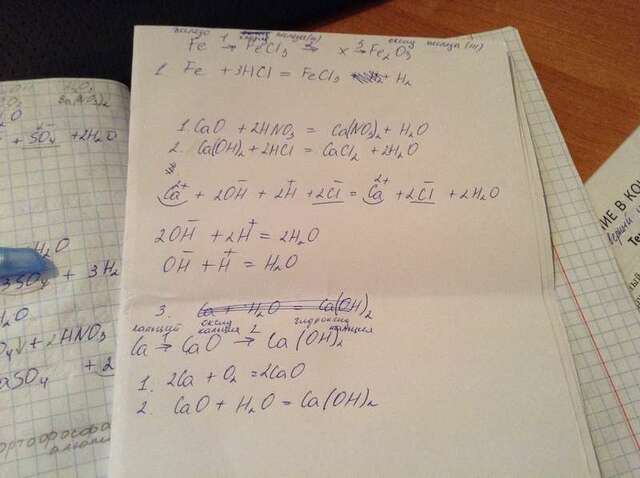 железо хлорид железа(III) оксид железа (III)
Fe 1→ FeCl3 2→ x 3→ Fe2O3
1. Fe + 3HCl = FeCl3 + H2
1. CaO + 2HNO3 = Ca(NO3)2 + H2O
2. Ca(OH)2 + 2HCl = CaCl2 + 2H2O
Ca2+ + 2OH- + 2H+ + 2Cl- = Ca2+ + 2Cl- + 2H2O
2OH- + 2H+ = 2H2O
OH- + H+ = H2O
3. Ca + H2O = Ca(OH)2
кальций оксид кальция гидроксид кальция
Ca 1→ CaO 2→ Ca(OH)2
1. 2Ca + O2 = 2CaO
2. CaO + H2O = Ca(OH)2
Ba(NO3)2
H2O
+ SO4 + 2H2O
H2O
3SO4 + 3H2
H2O
+ 2HNO3
aSO4 + 2
ортофосфа
НИЕ В КОН
Те